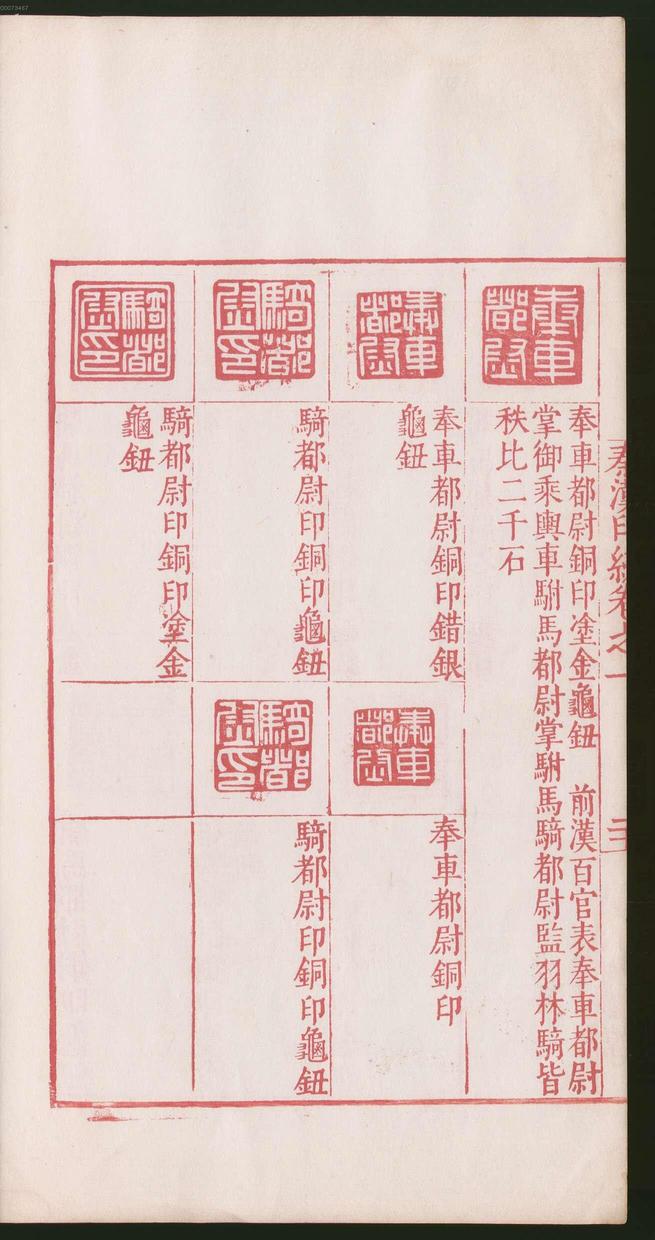 00073467
秦漢印統卷之一
二
奉車都尉
奉車都尉銅印塗金龜鈕　前漢百官表奉車都尉
掌御乘輿車駙馬都尉掌駙馬騎都尉監羽林騎皆
秩比二千石
奉車都尉
奉車都尉銅印錯銀
龜鈕
奉車都尉
奉車都尉銅印
騎都尉印
騎都尉印銅印龜鈕
騎都尉印
騎都尉印銅印龜鈕
騎都尉印
騎都尉印銅印塗金
龜鈕